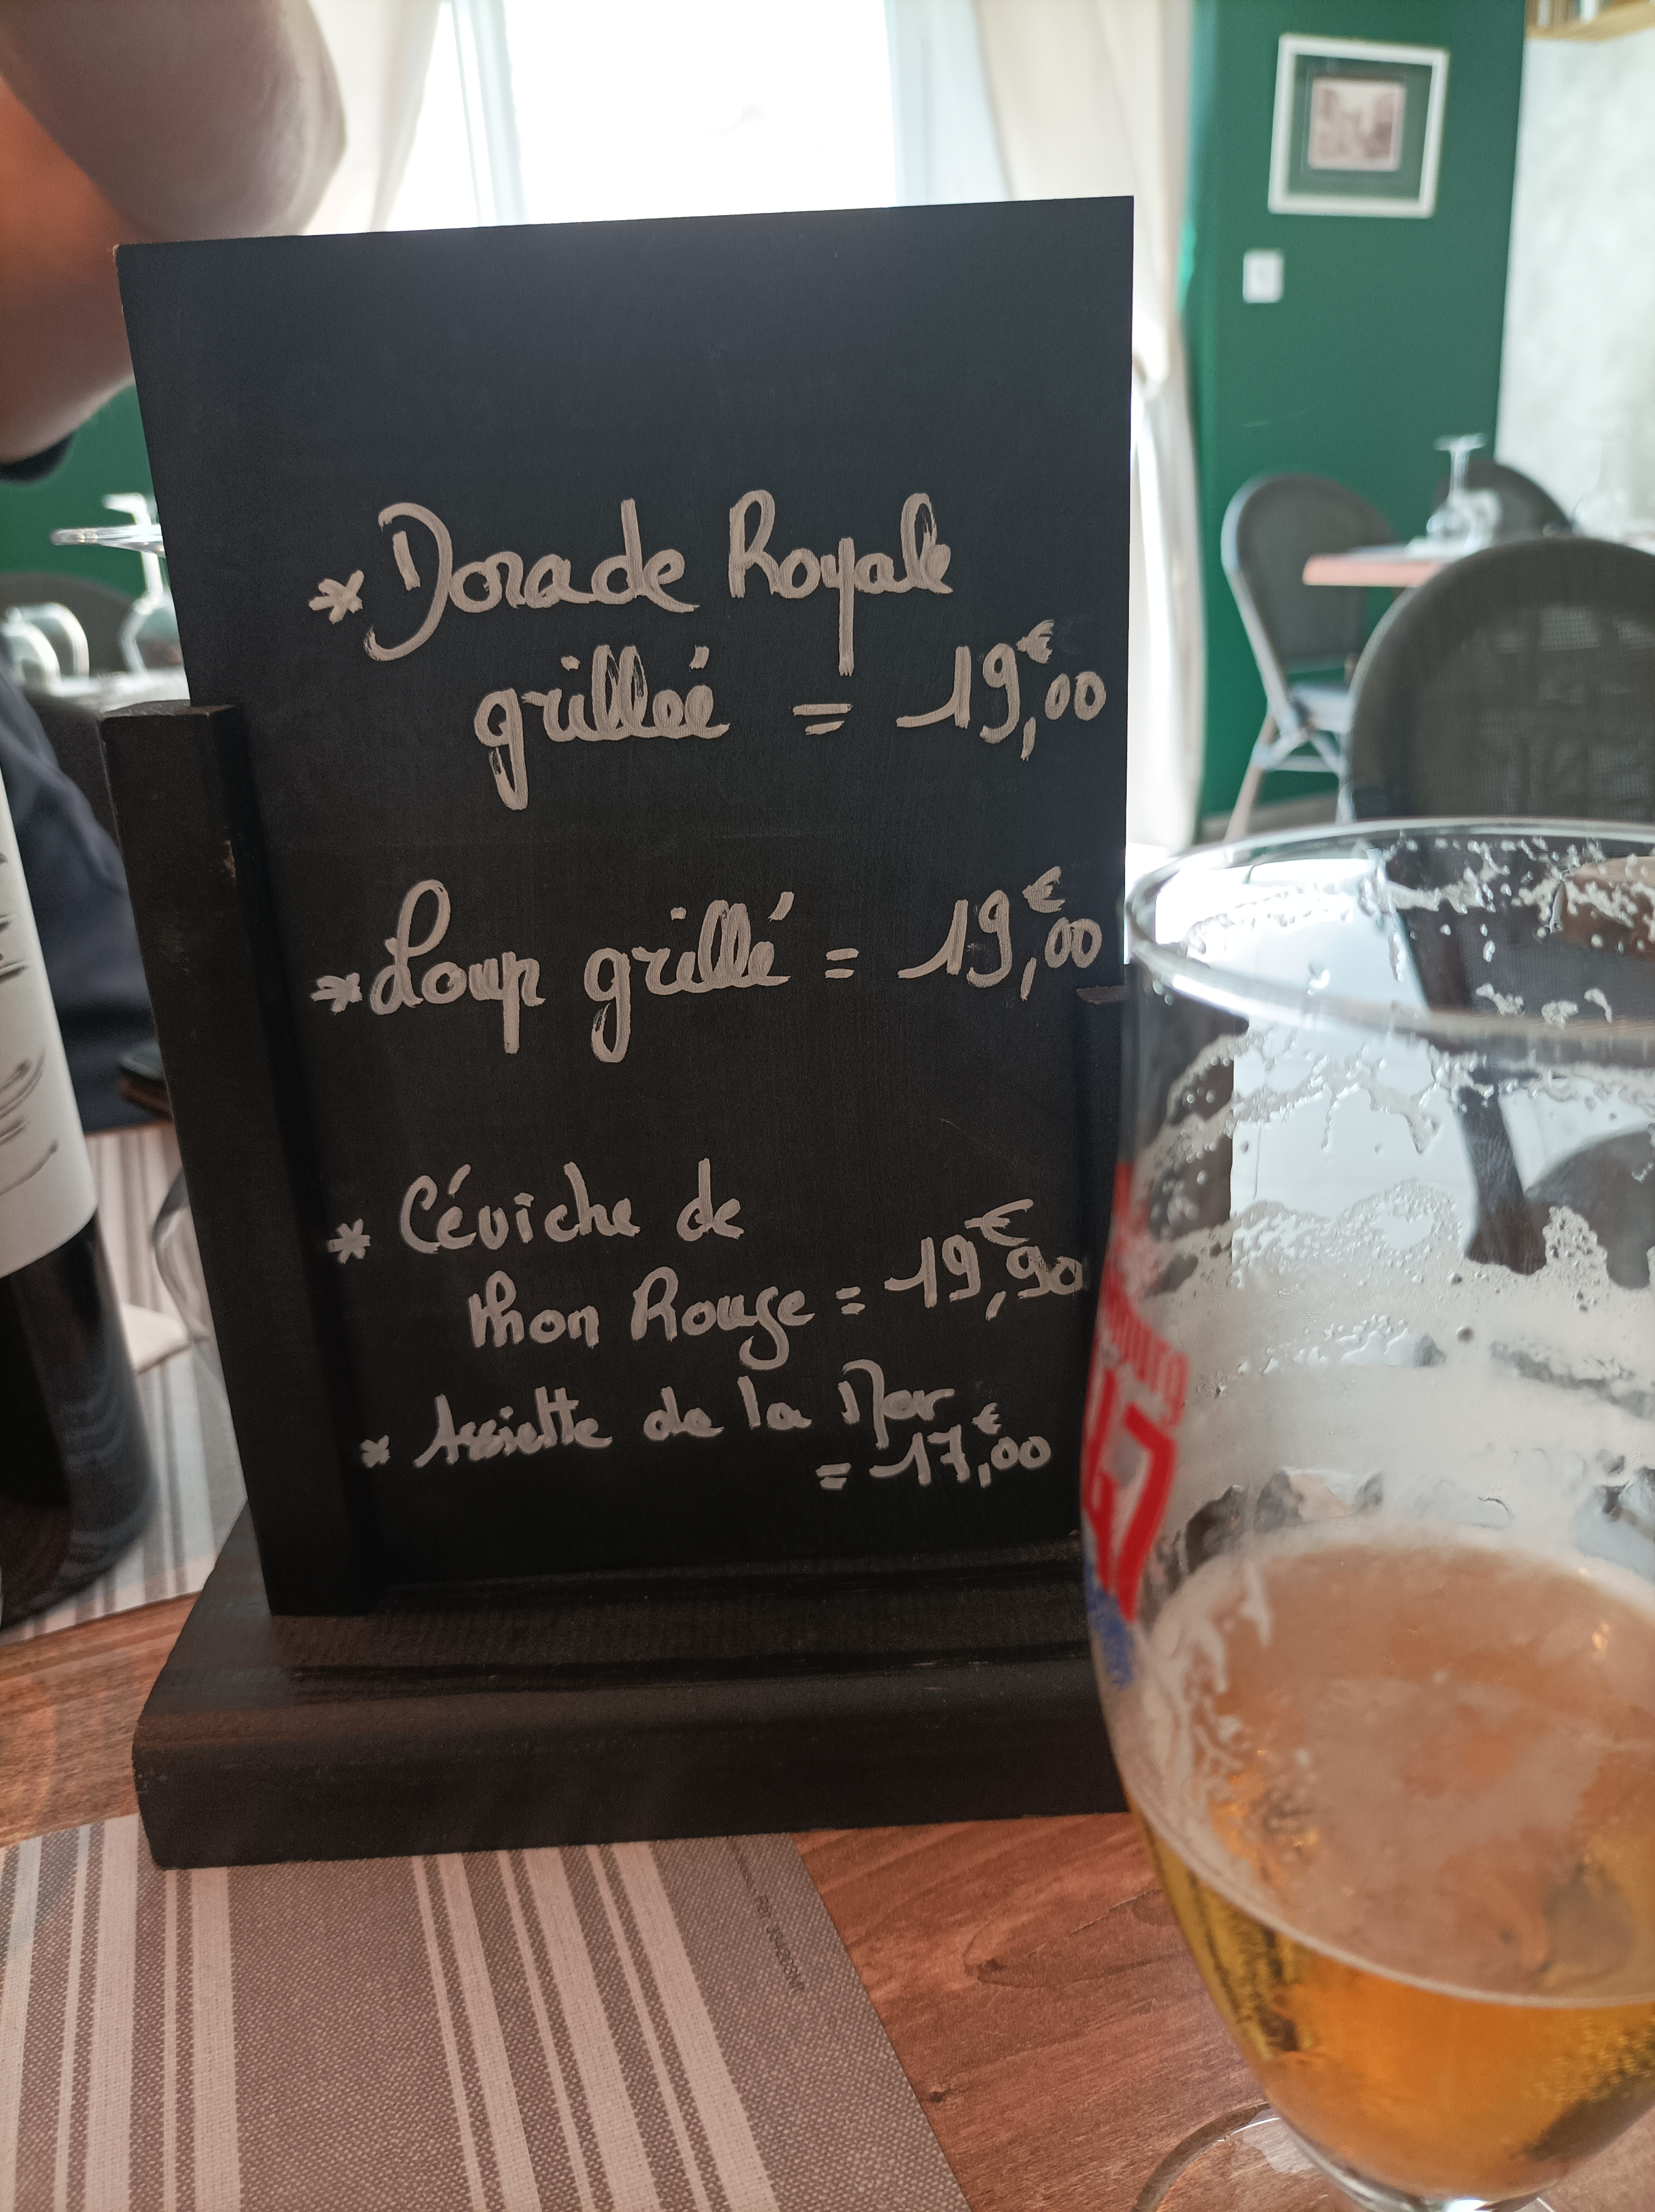 * Dorade Royale
grillée = 19,€00
* Loup grillé = 19,€00
* Céviche de
thon Rouge = 19,€90
* Assiette de la Mer
= 17,€00
47